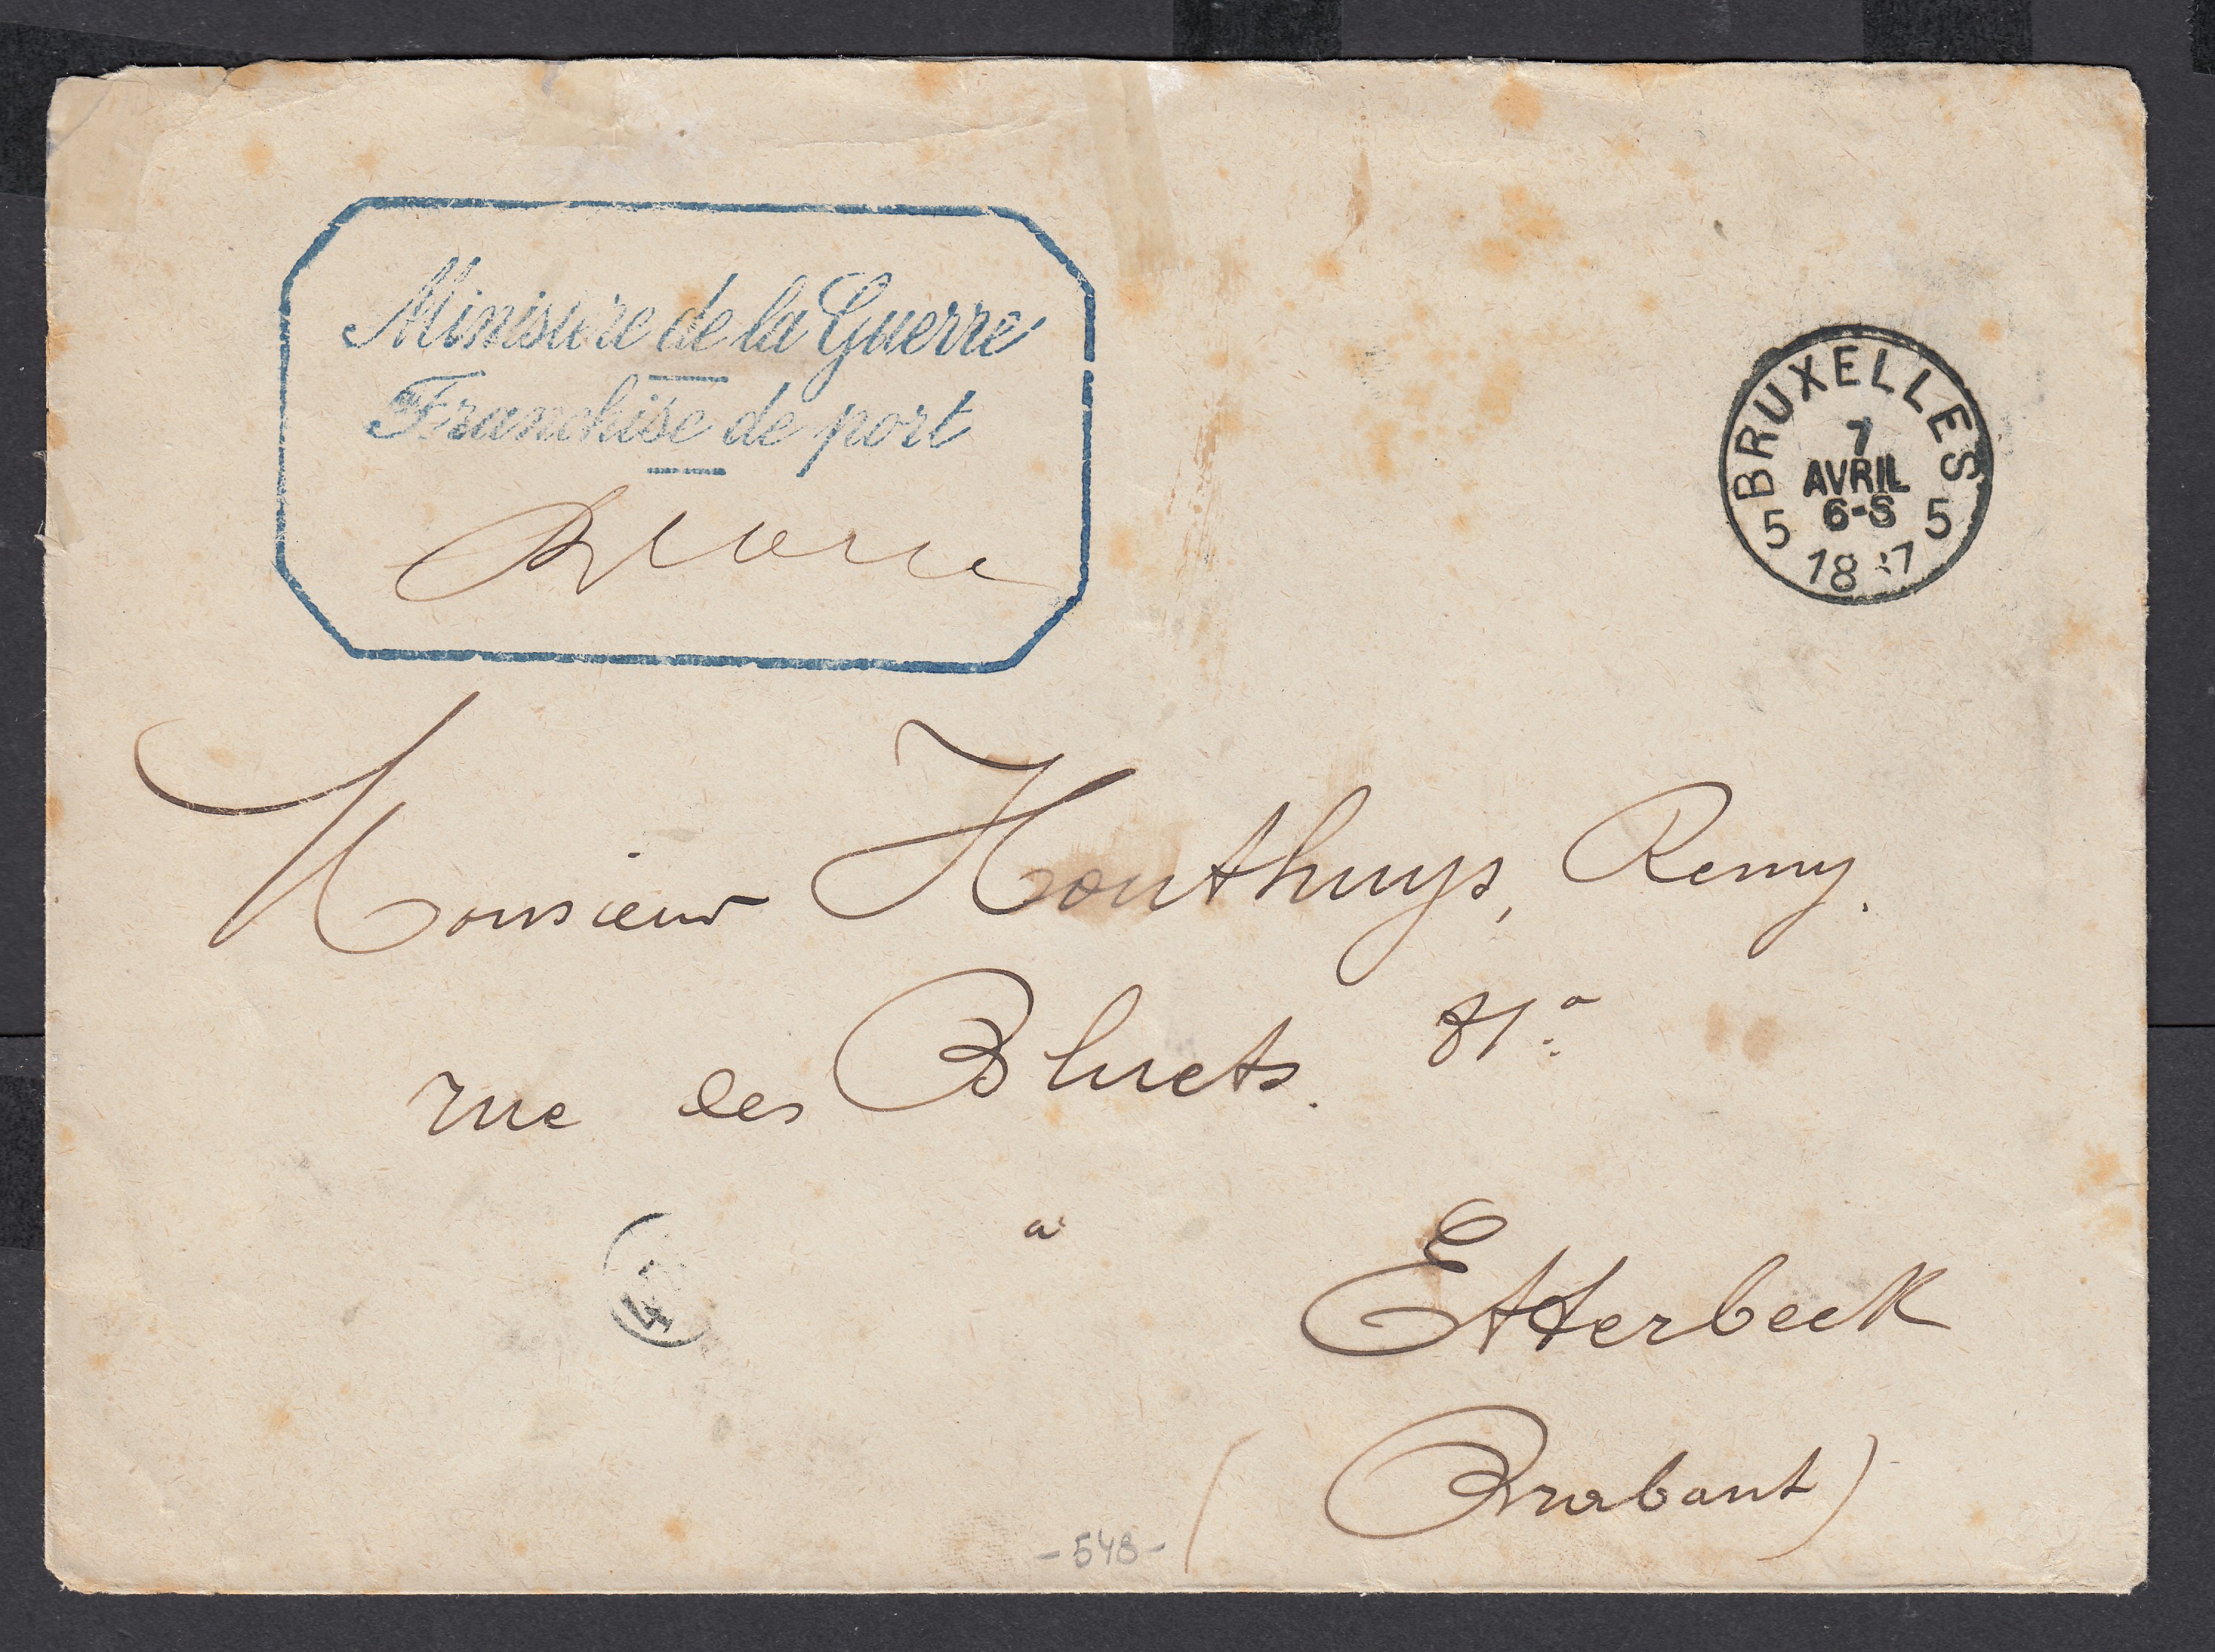 Ministère de la Guerre
Franchise de port
BRUXELLES
7
AVRIL
6-S
5 5
Monsieur Houthuys, Remy.
rue des Bluets.
à
Etterbeek
(Brabant)
- 548 -